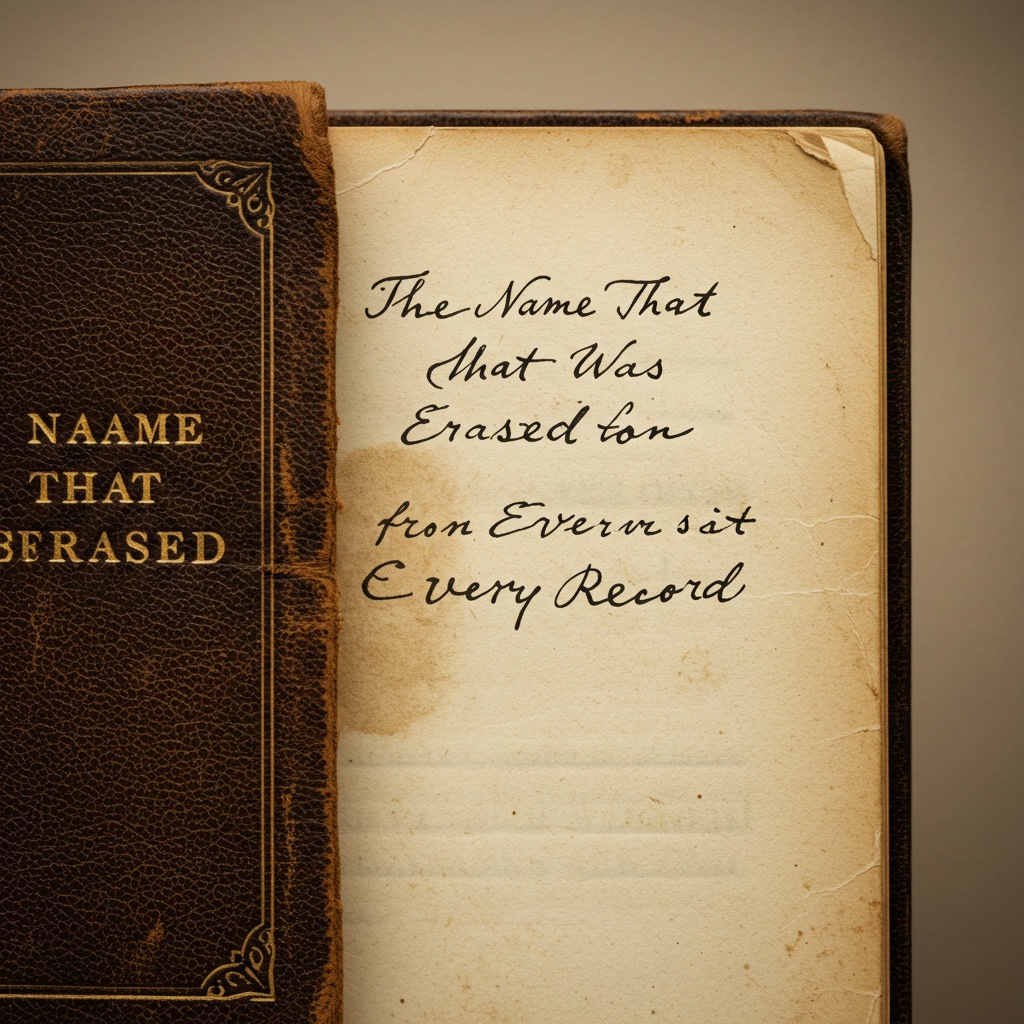 NAAME
THAT
BERASED
The Name That
that Was
Erased fon
fron Evervr sat
Every Record